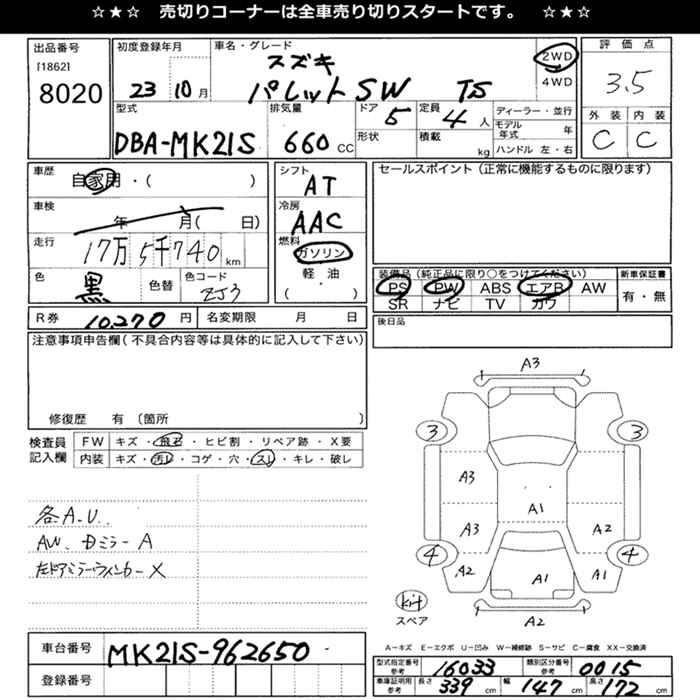 ☆★☆ 売切りコーナーは全車売り切りスタートです。 ☆★☆
出品番号 初度登録年月 車名・グレード 評価点
[1862] スズキ 2WD
8020 23 10月 パレットSW TS 4WD 3.5
型式 排気量 ドア 5 定員 4人 ディーラー・並行 外装 内装
DBA-MK21S 660 CC 形状 積載 kg モデル年式 年 C C
ハンドル 左・右
車歴 自家用・( ) シフト AT セールスポイント(正常に機能するものに限ります)
車検 年 月( 日) 冷房 AAC
走行 17万5千740 km 燃料 ガソリン
色 黒 色替 色コード ZJ3 軽・油 ( ・ )
装備品(純正品に限り○をつけてください) 新車保証書
PS PW ABS エアB AW 有・無
SR ナビ TV カワ
R券 10,270 円 名変期限 月 日 後日品
注意事項申告欄(不具合内容等は具体的に記入して下さい)
修復歴 有 〔箇所 〕
検査員 FW キズ・飛石・ヒビ割・リペア跡・X要
記入欄 内装 キズ・汚レ・コゲ・穴・スレ・キレ・破レ
各A.U.
AW、Dミラー A
左ドアミラーウィンカーX
A3
3 3
A3
A1
A3 A2
4 4
A2 A1 A1
A2
kit
スペア
A-キズ E-エクボ U-凹み W-補修跡 S-サビ C-腐食 XX-交換済
車台番号 MK21S-962650
登録番号
型式指定番号 参考 16033 類別区分番号 参考 0015
車庫証明用 参考 長さ 339 cm 幅 147 cm 高さ 172 cm